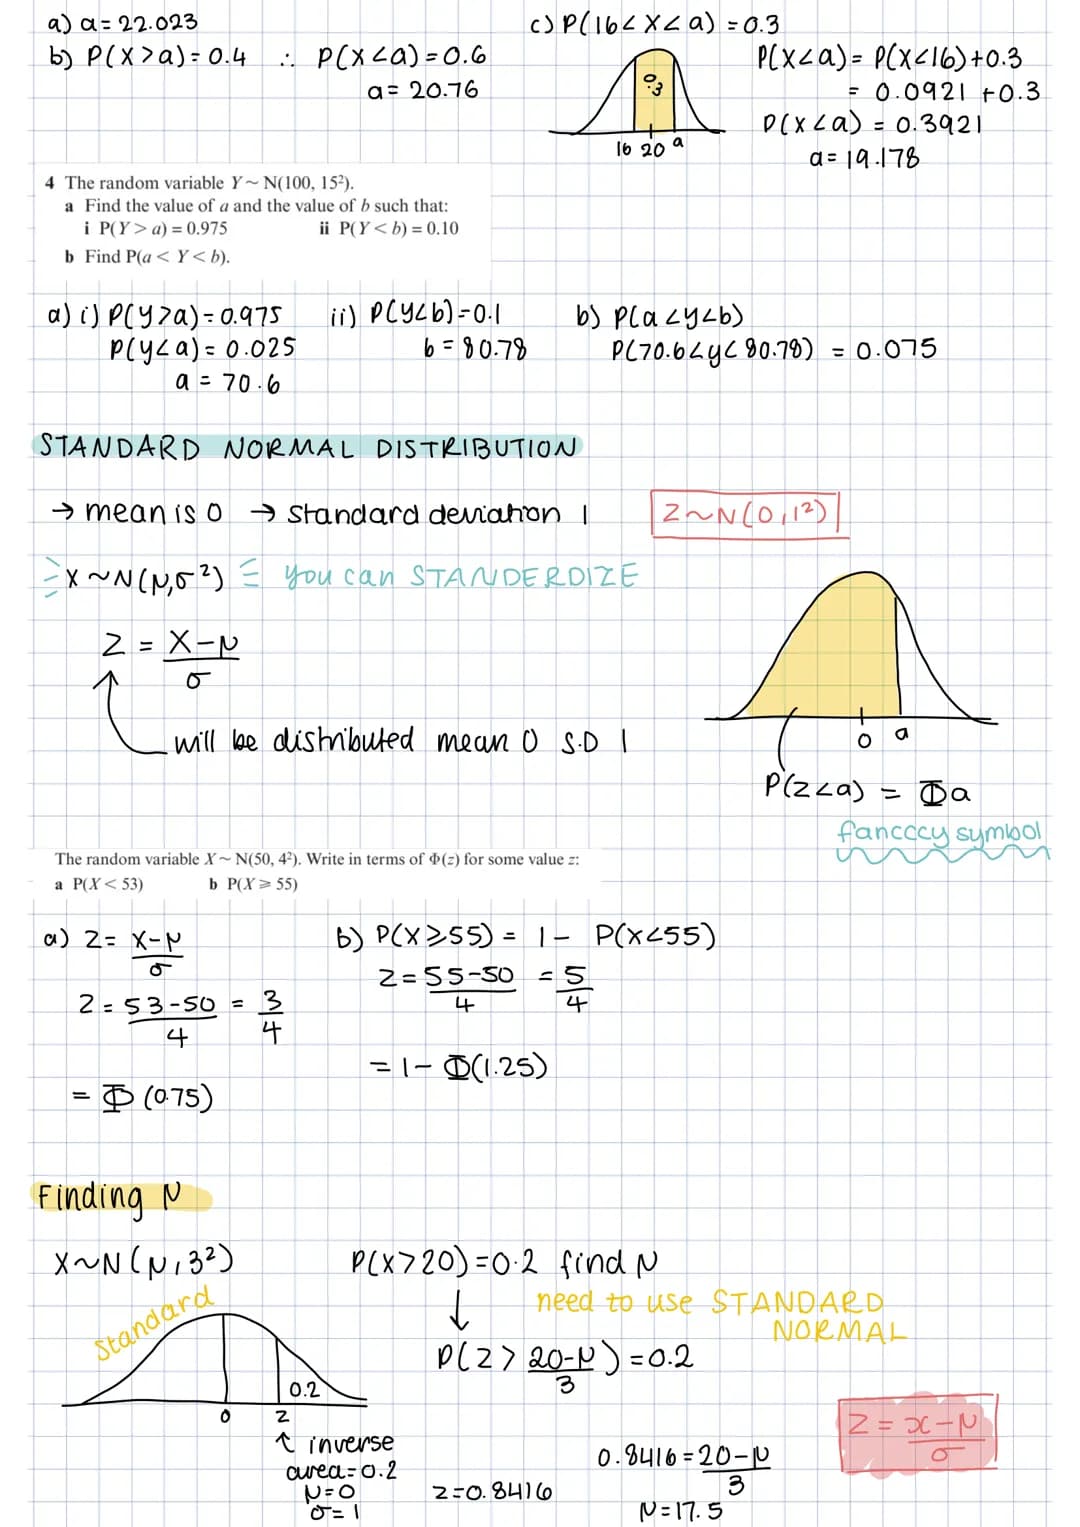 a) a = 22.023
b) P(X>a) = 0.4 ∴ P(X<a) = 0.6
a = 20.76
c) P(16<X<a) = 0.3
P(X<a) = P(X<16)+0.3
= 0.0921 +0.3
P(X<a) = 0.3921
a = 19.178
0.3
16 20 a
4 The random variable Y ~ N(100, 15²).
a Find the value of a and the value of b such that:
i P(Y > a) = 0.975 ii P(Y < b) = 0.10
b Find P(a < Y < b).
a) i) P(Y>a) = 0.975
P(Y<a) = 0.025
a = 70.6
ii) P(Y<b) = 0.1
b = 80.78
b) P(a<y<b)
P(70.6<y<80.78) = 0.075
STANDARD NORMAL DISTRIBUTION
→ mean is 0 → standard deviation 1
Z~N(0,1²)
X ~N(μ,σ²) you can STANDERDIZE
Z = X-μ
σ
will be distributed mean 0 S.D 1
0 a
P(Z<a) = Φa
fancccy symbol
The random variable X ~ N(50, 4²). Write in terms of Φ(z) for some value z:
a P(X < 53) b P(X ⩾ 55)
a) Z = X-μ
σ
Z = 53-50 = 3
4 4
= Φ (0.75)
b) P(X⩾55) = 1 - P(X<55)
Z = 55-50 = 5
4 4
= 1 - Φ(1.25)
Finding μ
X~N(μ,3²) P(X>20) = 0.2 find μ
↓ need to use STANDARD
NORMAL
standard
P(Z > 20-μ) = 0.2
3
0.2
0 z
↑ inverse
area = 0.2
μ = 0
σ = 1
z = 0.8416
0.8416 = 20-μ
3
μ = 17.5
Z = x-μ
σ